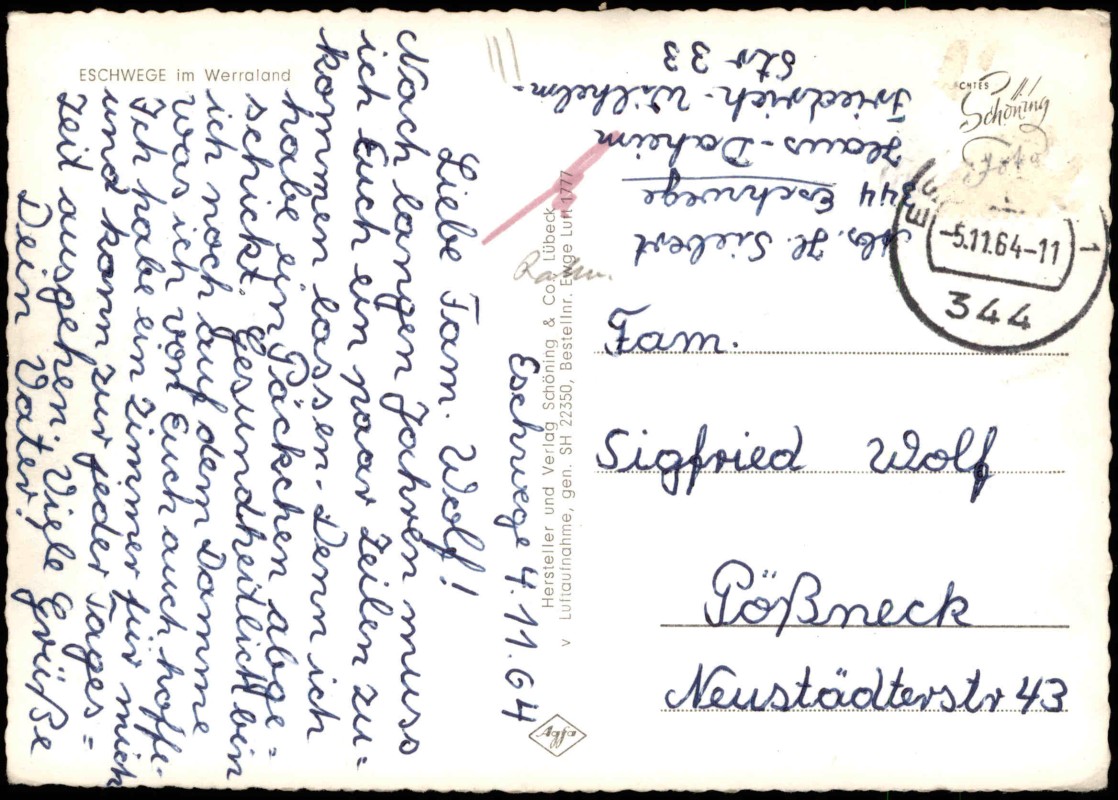 ESCHWEGE im Werraland
Eschwege 4.11.64
Liebe Fam. Wolf!
Nach langen Jahren muss
ich Euch ein paar Zeilen zu=
kommen lassen. Denn ich
habe ein Päckchen abge=
schickt. Gesundheitlich bin
ich noch auf dem Damme
was ich von Euch auch hoffe.
Ich habe ein Zimmer für mich
und kann zur jeder Tages=
zeit ausgehen. Viele Grüße
Dein Vater!
Hersteller und Verlag Schöning & Co., Lübeck
v Luftaufnahme, gen. SH 22350, Bestellnr. Eschwege Luft 1777
Agfa
Abs. H. Siebert
344 Eschwege
Haus-Daheim
Friedrich-Wilhelm-
Str 33
ECHTES
Schöning
Foto
-5.11.64-11
1
344
Fam.
Sigfried Wolf
Pößneck
Neustädterstr 43